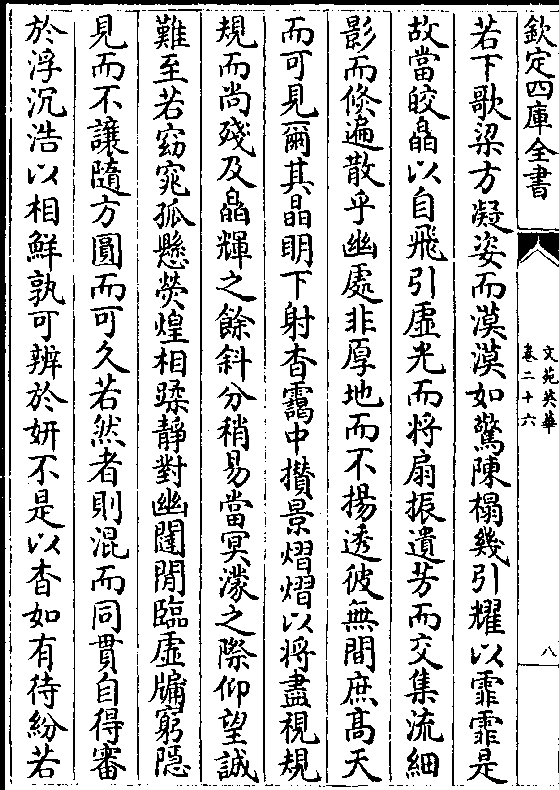 欽定四庫全書
文苑英華
卷二十六
八
若下歌梁方凝姿而漠漠如驚陳榻幾引耀以霏霏是
故當皎皛以自飛引虛光而將扇振遺芳而交集流細
影而倏遍散乎幽處非厚地而不揚透彼無間庶高天
而可見爾其晶明下射杳靄中攅景熠熠以將盡視規
規而尚殘及皛輝之餘斜分稍易當冥濛之際仰望誠
難至若窈窕孤懸熒煌相蹂靜對幽闥閒臨虛牖窮隱
見而不讓隨方圓而可久若然者則混而同貫自得審
於浮沉浩以相鮮孰可辨於妍不是以杳如有待紛若